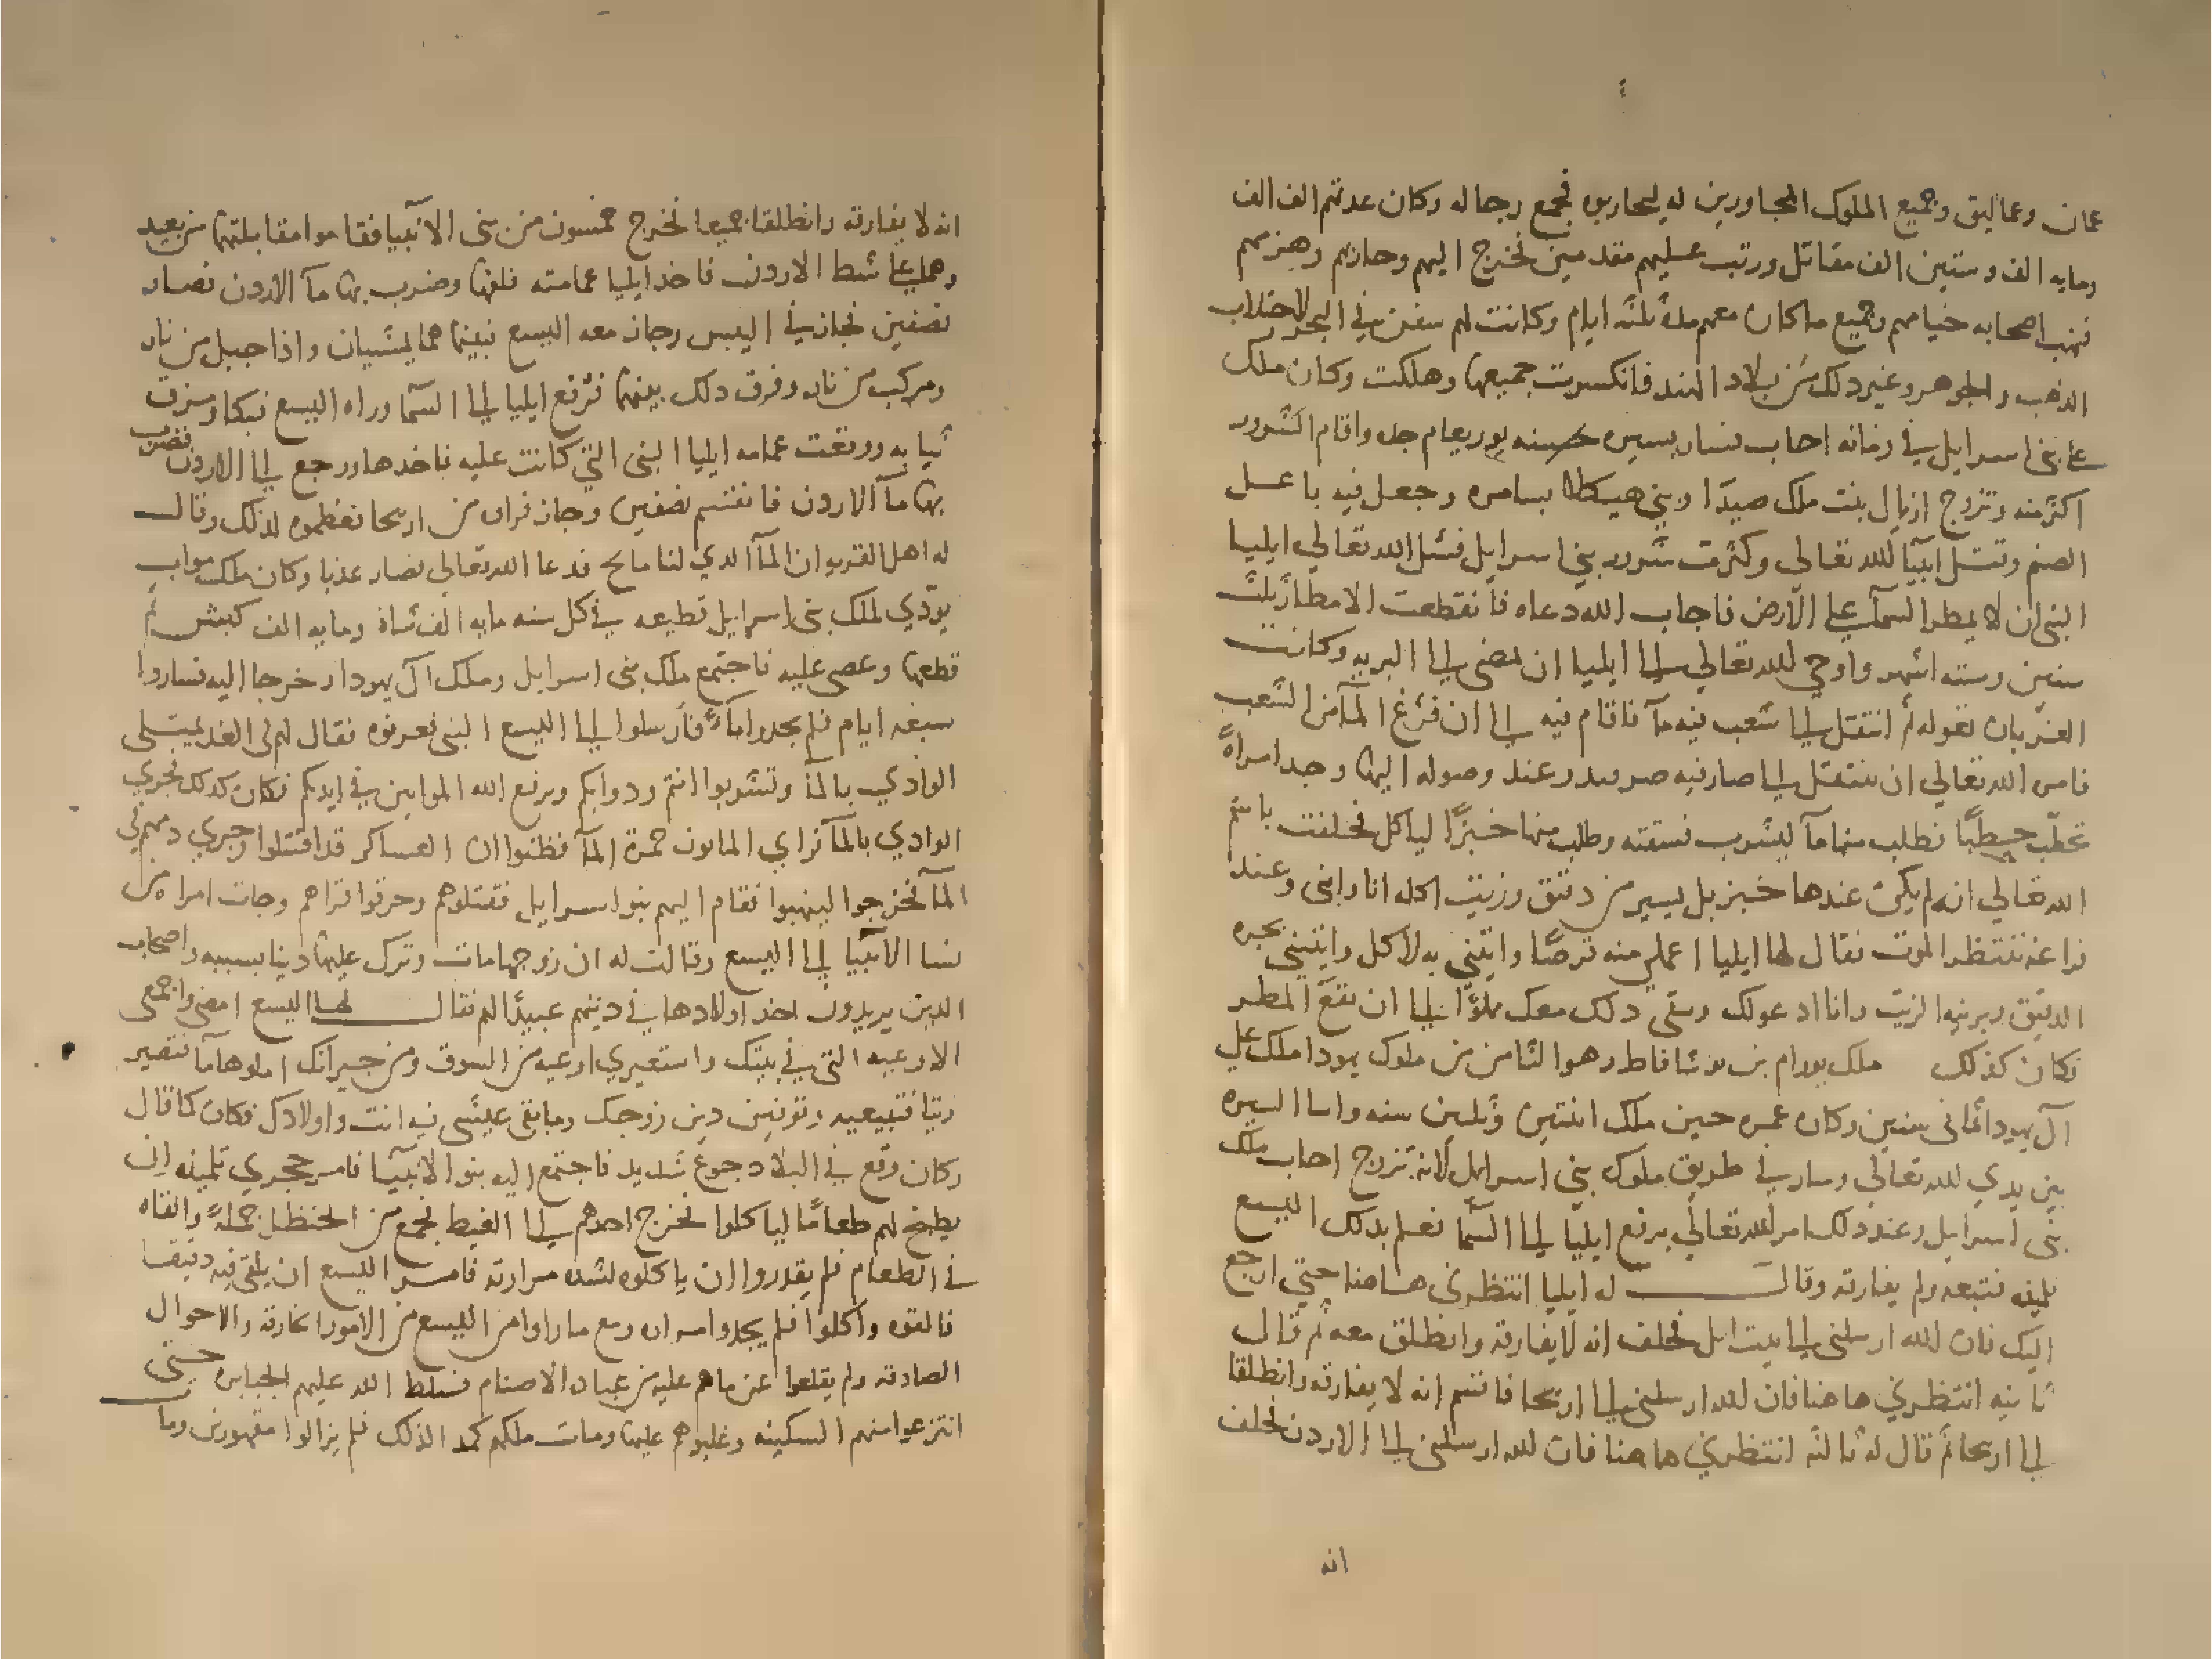 عمان وعماليق وجميع الملوك المجاورين له ليحاربوه فجمع رجاله وكان عدتهم الف الف
ومايه الف وستين الف مقاتل ورتب عليهم مقدمين فخرج اليهم وحاربهم وهزمهم
فنهب اصحابه خيامهم وجميع ماكان معهم مدة ثلثة ايام وكانت لهم سفن في البحر لاجتلاب
الذهب والجوهر وغير ذلك من بلاد الهند فانكسرت جميعها وهلكت وكان ملك
على بني اسرايل في زمانه احاب فسار بسيره يوربعام جده واقام الشرور
اكثر منه وتزوج ازبال بنت ملك صيدا وبني هيكلا بسامره وجعل فيه باعل
الصنم وقتل انبيآ الله تعالي وكثرت شرور بني اسرايل فسئل الله تعالي ايليا
النبي ان لا يمطر السمآ علي الارض فاجاب الله دعاه فانقطعت الامطار ثلث
سنين وسته اشهر واوحي الله تعالي الي ايليا ان يمضي الي البريه وكانت
الغربان تقوله ثم انتقل الي شعب فيه مآ فاقام فيه الي ان فرغ المآ من الشعب
فامره الله تعالي ان ينتقل الي صارفيه صيدا وعند وصوله اليها وجد امراة
تحطب حطبًا فطلب منها مآ ليشرب فسقته وطلب منها خبزًا لياكل فحلفت باسم
الله تعالي انه لم يكن عندها خبز بل يسير من دقيق وزيت اكله انا وابني وعند
فراغه ننتظر الموت فقال لها ايليا اعملي منه قرصًا وايتني به لاكل وايتيني بجره
الدقيق وبرنيه الزيت وانا ادعولك وبقي ذلك معك مملوًا الي ان يقع المطر
فكان كذلك ملك يورام بن يوشافاط وهو الثامن من ملوك يهودا ملك علي
آل يهودا ثماني سنين وكان عمره حين ملك اثنتين وثلثين سنه واسا السيره
بين يدي الله تعالي وسار في طريق ملوك بني اسرايل لانه تزوج احاب ملك
بني اسرايل وعند ذلك امر الله تعالي برفع ايليا الي السمآ فعلم بذلك اليسع
تلميذه فتبعه ولم يفارقه وقال له ايليا انتظرني هاهنا حتي ارجع
اليك فان الله ارسلني الي بيت ايل فحلف انه لا يفارقه وانطلق معه ثم قال
ثانيه انتظرني هاهنا فان الله ارسلني الي اريحا فاقسم انه لا يفارقه وانطلقا
الي اريحا ثم قال له ثالثه انتظرني هاهنا فان الله ارسلني الي الاردن فحلف
انه
انه لا يفارقه وانطلقا جميعا فخرج خمسون من بني الانبيا فقاموا مقابلتهما من بعيد
وهما علي شط الاردن فاخذ ايليا عمامته فلفها وضرب بها مآ الاردن فصار
نصفين فجاز في اليبس وجاز معه اليسع فبينما هما يمشيان واذا جبل من نار
ومركب من نار وفرق ذلك بينهما فرفع ايليا الي السما وراه اليسع فبكا ومزق
ثيابه ووقعت عمامه ايليا النبي التي كانت عليه فاخذها ورجع الي الاردن فضرب
بها مآ الاردن فانقسم نصفين وجاز فراه من اريحا فعظموه لذلك وقال
له اهل القريه ان المآ الذي لنا مالح فدعا الله تعالي فصار عذبا وكان ملك مواب
يودي لملك بني اسرايل قطيعه في كل سنه مايه الف شاة ومايه الف كبش ثم
قطعها وعصي عليه فاجتمع ملك بني اسرايل وملك آل يهودا وخرجا اليه فساروا
سبعه ايام فلم يجدوا مآءً فارسلوا الي اليسع النبي فعرفوه فقال لهم في الغد يمتلي
الوادي بالمآ وتشربوا انتم ودوابكم ويرفع الله الموابين في ايديكم فكان كذلك فجري
الوادي بالمآ فراي المابون حمرة المآ فظنوا ان العساكر قد اقتتلوا وجري دمهم في
المآ فخرجوا لينهبوا فقام اليهم بنوا اسرايل فقتلوهم وحرقوا قراهم وجات امراه من
نسا الانبيا الي اليسع وقالت له ان زوجها مات وترك عليها دينا بسببه واصحاب
الدين يريدون اخذ اولادها في دينهم عبيدًا لهم فقال لها اليسع امضي واجمعي
الاوعيه التي في بيتك واستعيري اوعيه من السوق ومن جيرانك املوها مآ فتصير
زيتا فتبيعيه وتوفين دين زوجك وما بقي عيشي فيه انت واولادك فكان كما قال
وكان وقع في البلاد جوع شديد فاجتمع اليه بنوا الانبيآ فامر حجري تلميذه ان
يطبخ لهم طعامًا لياكلوا فخرج احدهم الي الغيط فجمع من الحنظل جملةً والقاه
في الطعام فلم يقدروا ان ياكلوه لشده مرارته فامر اليسع ان يلقي فيه دقيقا
فالقوه واكلوا فلم يجدوا مراره ومع ماراوا من اليسع من الامور الخارقه والاحوال
الصادقه ولم يقلعوا عن ما هم عليه من عباده الاصنام فسلط الله عليهم الجبابره حتي
انتزعوا منهم السكينه وغلبوهم عليها ومات ملكهم كمدا لذلك فلم يزالوا مقهورين وما